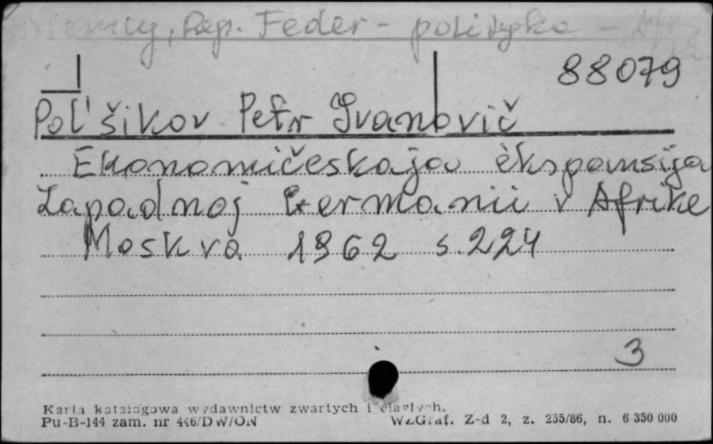 Niemcy, Rep. Feder - polityka - Afryka
88079
Pol'šikov Petr Ivanovič
Ekonomičeskaja èkspansija
Zapadnoj Germanii v Afrike
Moskva 1962 s. 224
3
Karta katalogowa wydawnictw zwartych i ciągłych.
Pu-B-144 zam. nr 446/DW/ON WZGraf. Z-d 2, z. 255/86, n. 6 350 000